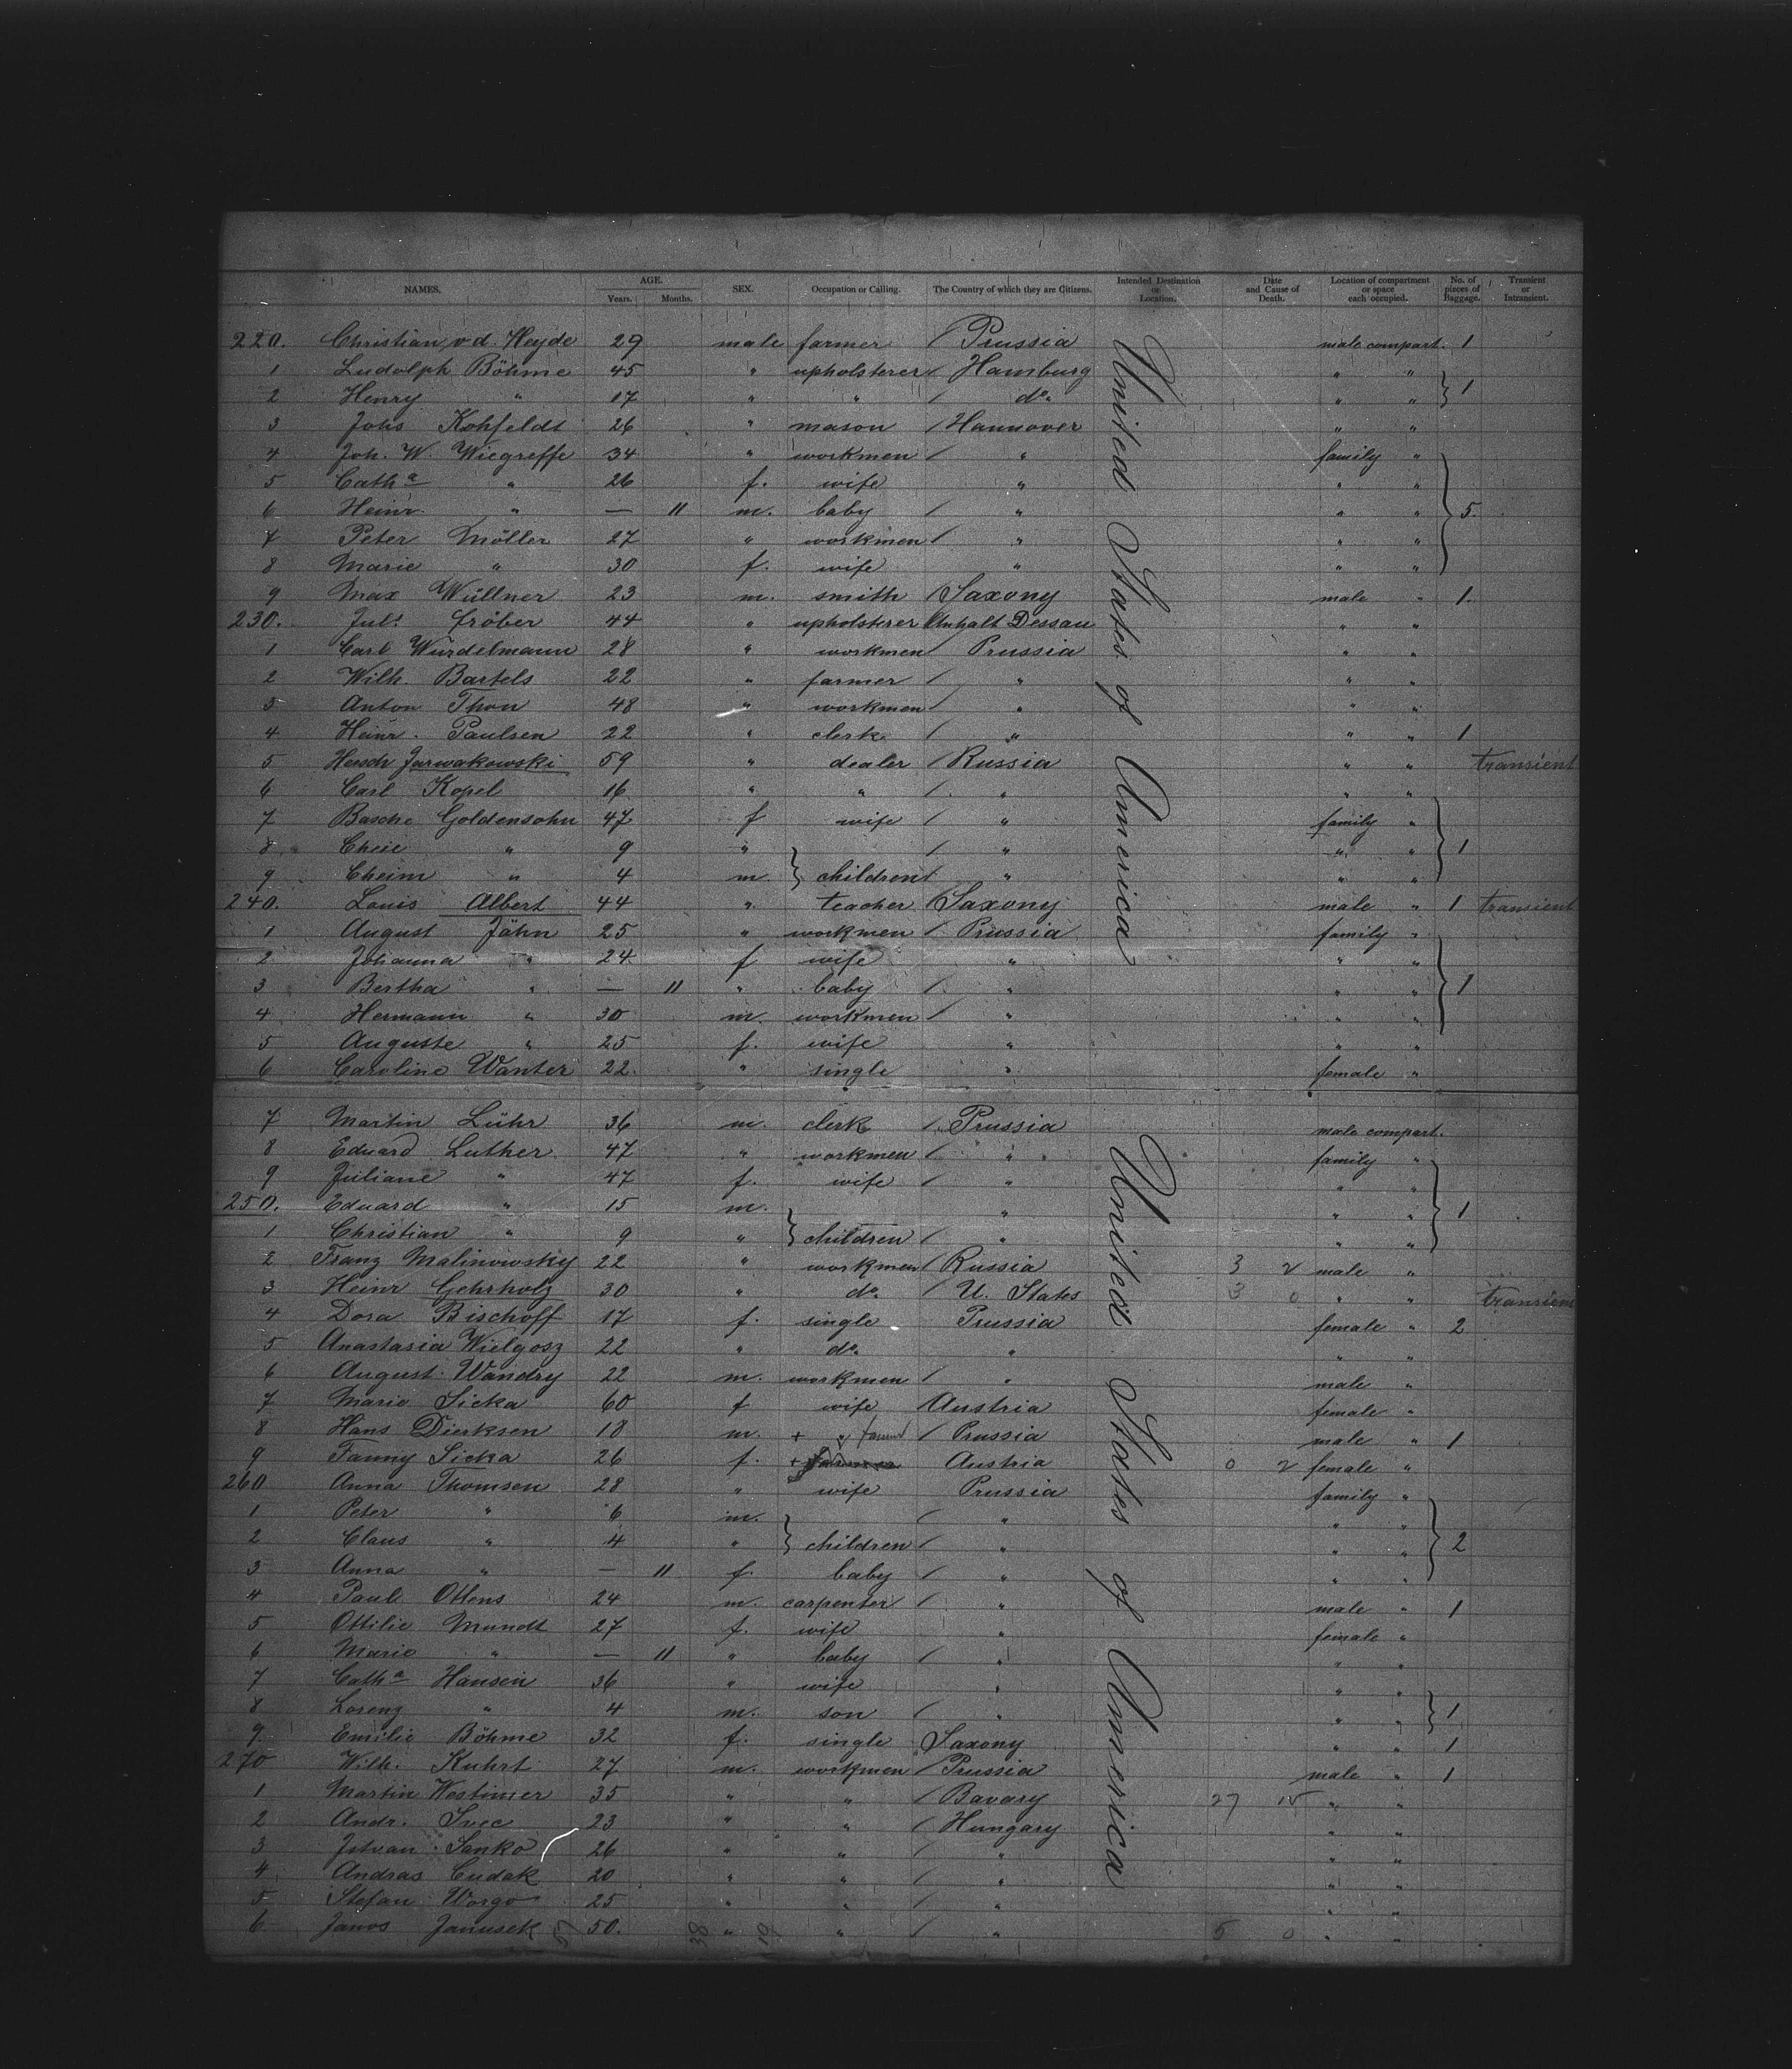 NAMES. AGE. Years. Months. SEX. Occupation or Calling. The Country of which they are Citizens. Intended Destination or Location. Date and Cause of Death. Location of compartment or space each occupied. No. of pieces of Baggage. Transient or Intransient.
220. Christian v d. Heyde 29 male farmer / Prussia male compart. 1
1 Ludolph Böhme 45 " upholsterer / Hamburg " "
2 Henry " 17 " " / do. " " } 1
3 Johs Kohfeldt 26 " mason / Hannover " "
4 Joh. W. Wiegreffe 34 " workmen / " family "
5 Catha " 26 f. wife " " "
6 Heinr. " — 11 m. baby / " " " } 5.
7 Peter Möller 27 " workmen / " " "
8 Marie " 30 f. wife " " "
9 Max Wüllner 23 m. smith / Saxony male " 1.
230. Juls. Fröber 44 " upholsterer Anhalt Dessau " "
1 Carl Würdelmann 28 " workmen / Prussia " "
2 Wilh. Bartels 22 " farmer / " " "
3 Anton Thon 48 " workmen / " " "
4 Heinr. Paulsen 22 " clerk / " " " 1
5 Hersch Jarwakowski 59 " dealer / Russia " " transient
6 Carl Kopel 16 " " / " " "
7 Basche Goldensohn 47 f wife / " family "
8 Cheie " 9 " / " " " } 1
9 Cheim " 4 m. } children / " " "
240. Louis Albert 44 " teacher / Saxony male " 1 transient
1 August Jähn 25 " workmen / Prussia family "
2 Johanna " 24 f wife " " "
3 Bertha " — 11 " baby / " " " } 1
4 Hermann " 30 m. workmen / " " "
5 Auguste " 25 f. wife " " "
6 Caroline Wanter 22. " single " female "
United States of America
7 Martin Lühr 36 m. clerk / Prussia male compart.
8 Eduard Luther 47 " workmen / " family "
9 Juliane " 47 f. wife / " " "
250. Eduard " 15 m. " " " } 1
1 Christian " 9 " } children / " " "
2 Franz Malinowsky 22 " workmen / Russia 3 2 male "
3 Heinr Gehrholz 30 " do. / U. States 3 0 " " transient
4 Dora Bischoff 17 f. single Prussia female " 2
5 Anastasia Wielgosz 22 " do. " " "
6 August Wandry 22 m. workmen / " male "
7 Marie Sicka 60 f wife Austria female "
8 Hans Dierksen 18 m. + " / Prussia male " 1
9 Fanny Sicka 26 f. + farmer Austria 0 2 female "
260 Anna Thomsen 28 " wife Prussia family "
1 Peter " 6 m. / " " "
2 Claus " 4 " } children / " " " } 2
3 Anna " — 11 f. baby / " " "
4 Paul Ottens 24 m. carpenter / " male " 1
5 Ottilie Mundt 27 f. wife " female "
6 Marie " — 11 " baby / " " "
7 Catha Hansen 36 " wife " " "
8 Lorenz " 4 m. son / " " " } 1
9. Emilie Böhme 32 f. single Saxony " " 1
270 Wilh. Kuhrt 27 m. workmen / Prussia male " 1
1 Martin Westimer 35 " " / Bavary 27 15 " "
2 Andr. Svec 23 " " / Hungary " "
3 Jstvan Sanko 26 " " / " " "
4 Andras Cudak 20 " " / " " "
5 Stefan Worgo 25 " " / " " "
6 Janos Janusek 50. " " / " 5 0 " "
United States of America